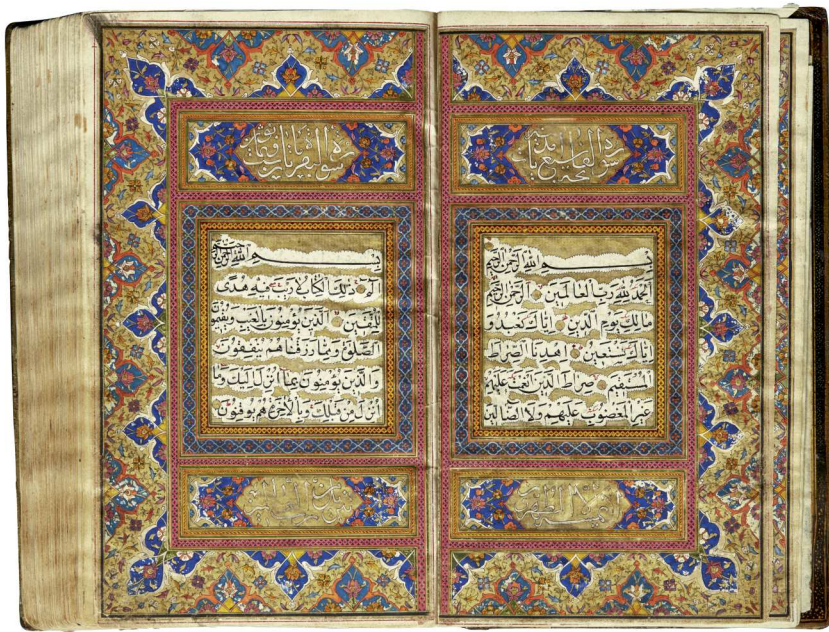 سورة الفاتحة سبع آيات
بسم الله الرحمن الرحيم
الحمد لله رب العالمين الرحمن الرحيم
مالك يوم الدين اياك نعبد و
اياك نستعين اهدنا الصراط
المستقيم صراط الذين انعمت عليهم
غير المغضوب عليهم ولا الضالين
سورة البقرة
بسم الله الرحمن الرحيم
الم ذلك الكتاب لا ريب فيه هدى
للمتقين الذين يؤمنون بالغيب ويقيمون
الصلوة ومما رزقناهم ينفقون
والذين يؤمنون بما انزل اليك وما
انزل من قبلك وبالآخرة هم يوقنون